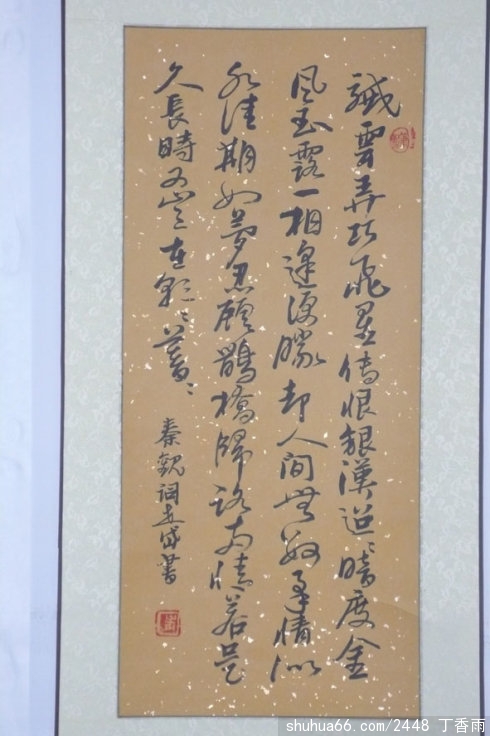 纖雲弄巧飛星傳恨銀漢迢〻暗度金
風玉露一相逢便勝却人間無數柔情似
水佳期如夢忍顧鵲橋歸路兩情若是
久長時又豈在朝〻暮〻
秦觀詞 書
shuhua66.com/2448 丁香雨